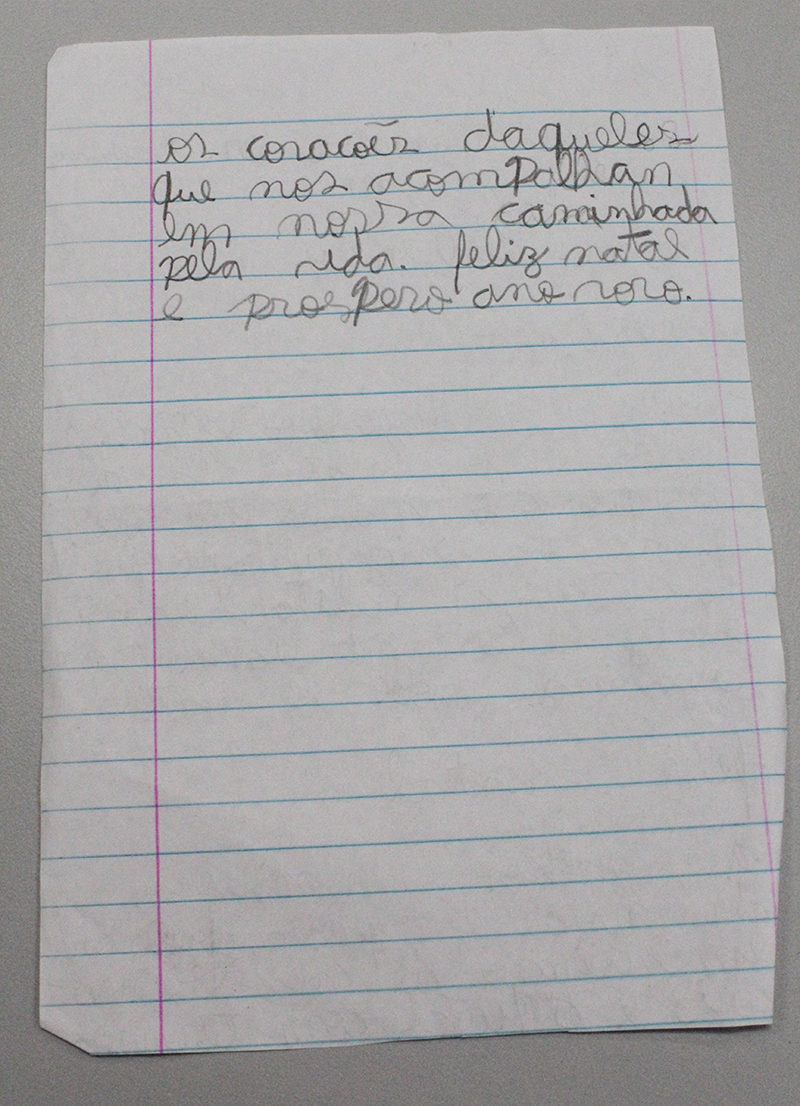 os coracoẽs daqueles
que nos acompalhan
em nossa caminhada
pela vida. feliz natal
e prospero ano novo.